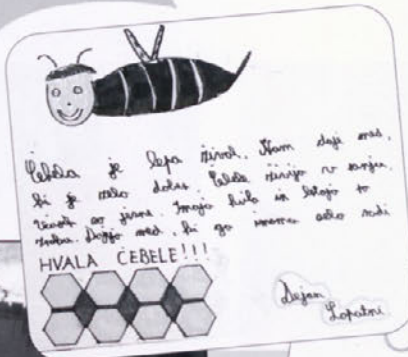 Čebela je lepa žival. Nam daje med,
ki je zelo dober. Čebele živijo v panju.
so jasne. Imajo in letijo to
med, ki ga imamo zelo radi
HVALA ČEBELE!!!
Dejan
Lopatni